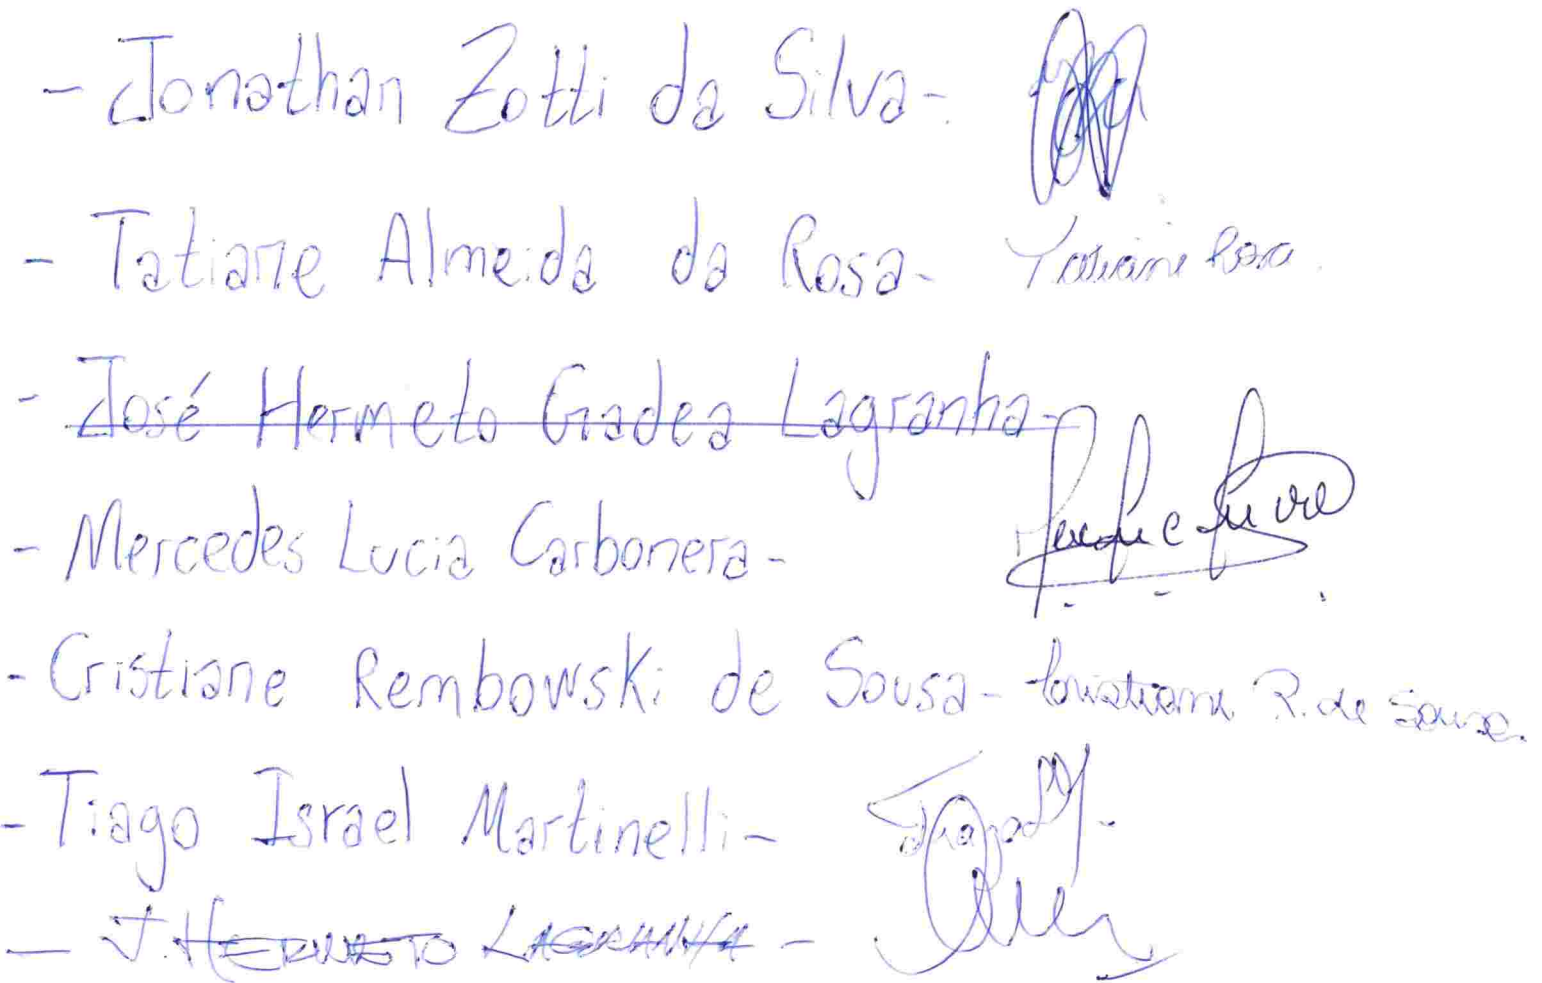 - Jonathan Zotti da Silva-
- Tatiane Almeida da Rosa- Tatiane Rosa.
- José Hermeto Gadea Lagranha-
- Mercedes Lucia Carbonera-
- Cristiane Rembowski de Sousa- Cristiane R. de Sousa.
- Tiago Israel Martinelli-
- J. HERMETO LAGRANHA -